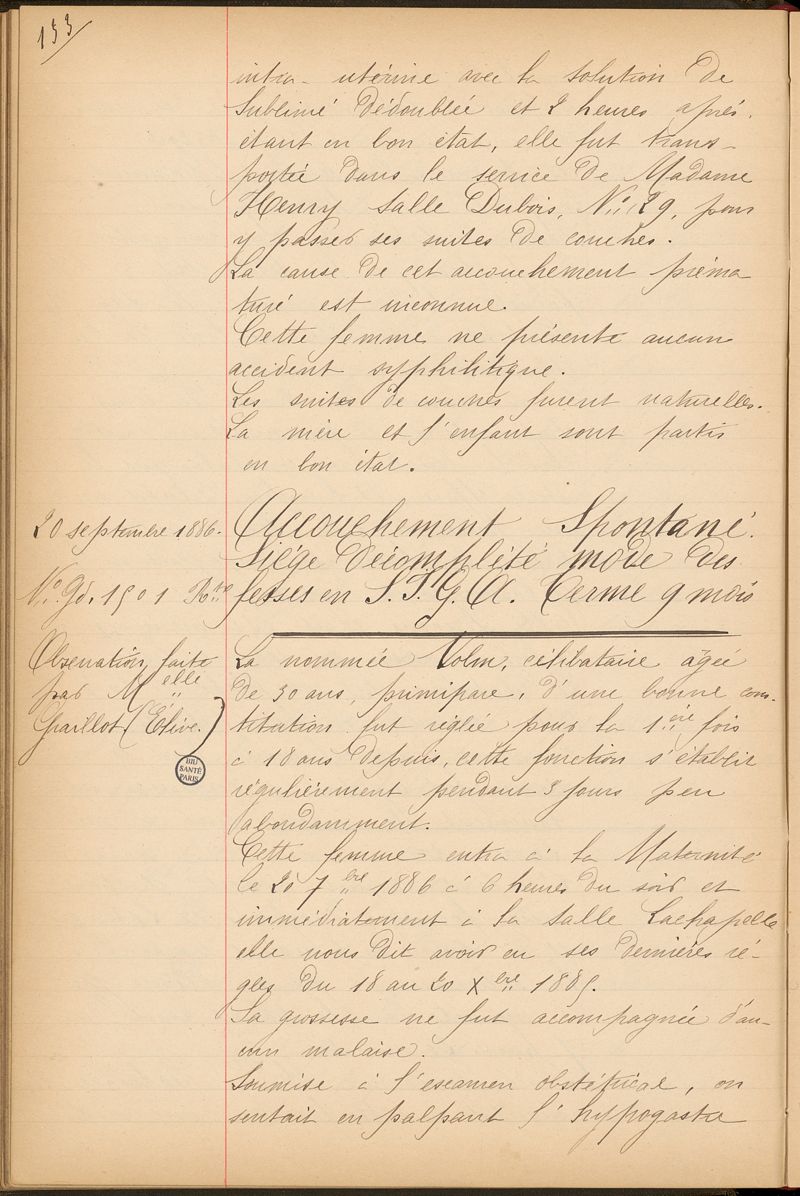 133
intra-utérine avec la solution de
Sublimé dédoublée et 2 heures après.
étant en bon état, elle fut trans-
portée dans le service de Madame
Henry salle Dubois, No 29, pour
y passer ses suites de couches.
La cause de cet accouchement préma-
turé est inconnue.
Cette femme ne présente aucun
accident syphilitique.
Les suites de couches furent naturelles.
La mère et l'enfant sont partis
en bon état.
20 septembre 1886.
No Gd. 1501
Accouchement Spontané.
Siège décomplété mode des
fesses en S.I.G.A. Terme 9 mois
Observation faite
par Melle
Chaillot (Élève.)
BIU
SANTÉ
PARIS
La nommée Volm, célibataire âgée
de 30 ans, primipare, d'une bonne cons-
titution fut réglée pour la 1ère fois
à 18 ans depuis, cette fonction s'établit
régulièrement pendant 3 jours peu
abondamment.
Cette femme entra à la Maternité
le 20 7bre 1886 à 6 heures du soir et
immédiatement à la salle Lachapelle
elle nous dit avoir eu ses dernières rè-
gles du 18 au 20 Xbre 1885.
La grossesse ne fut accompagnée d'au-
cun malaise.
Soumise à l'examen obstétrical, on
sentait en palpant l'hypogastre